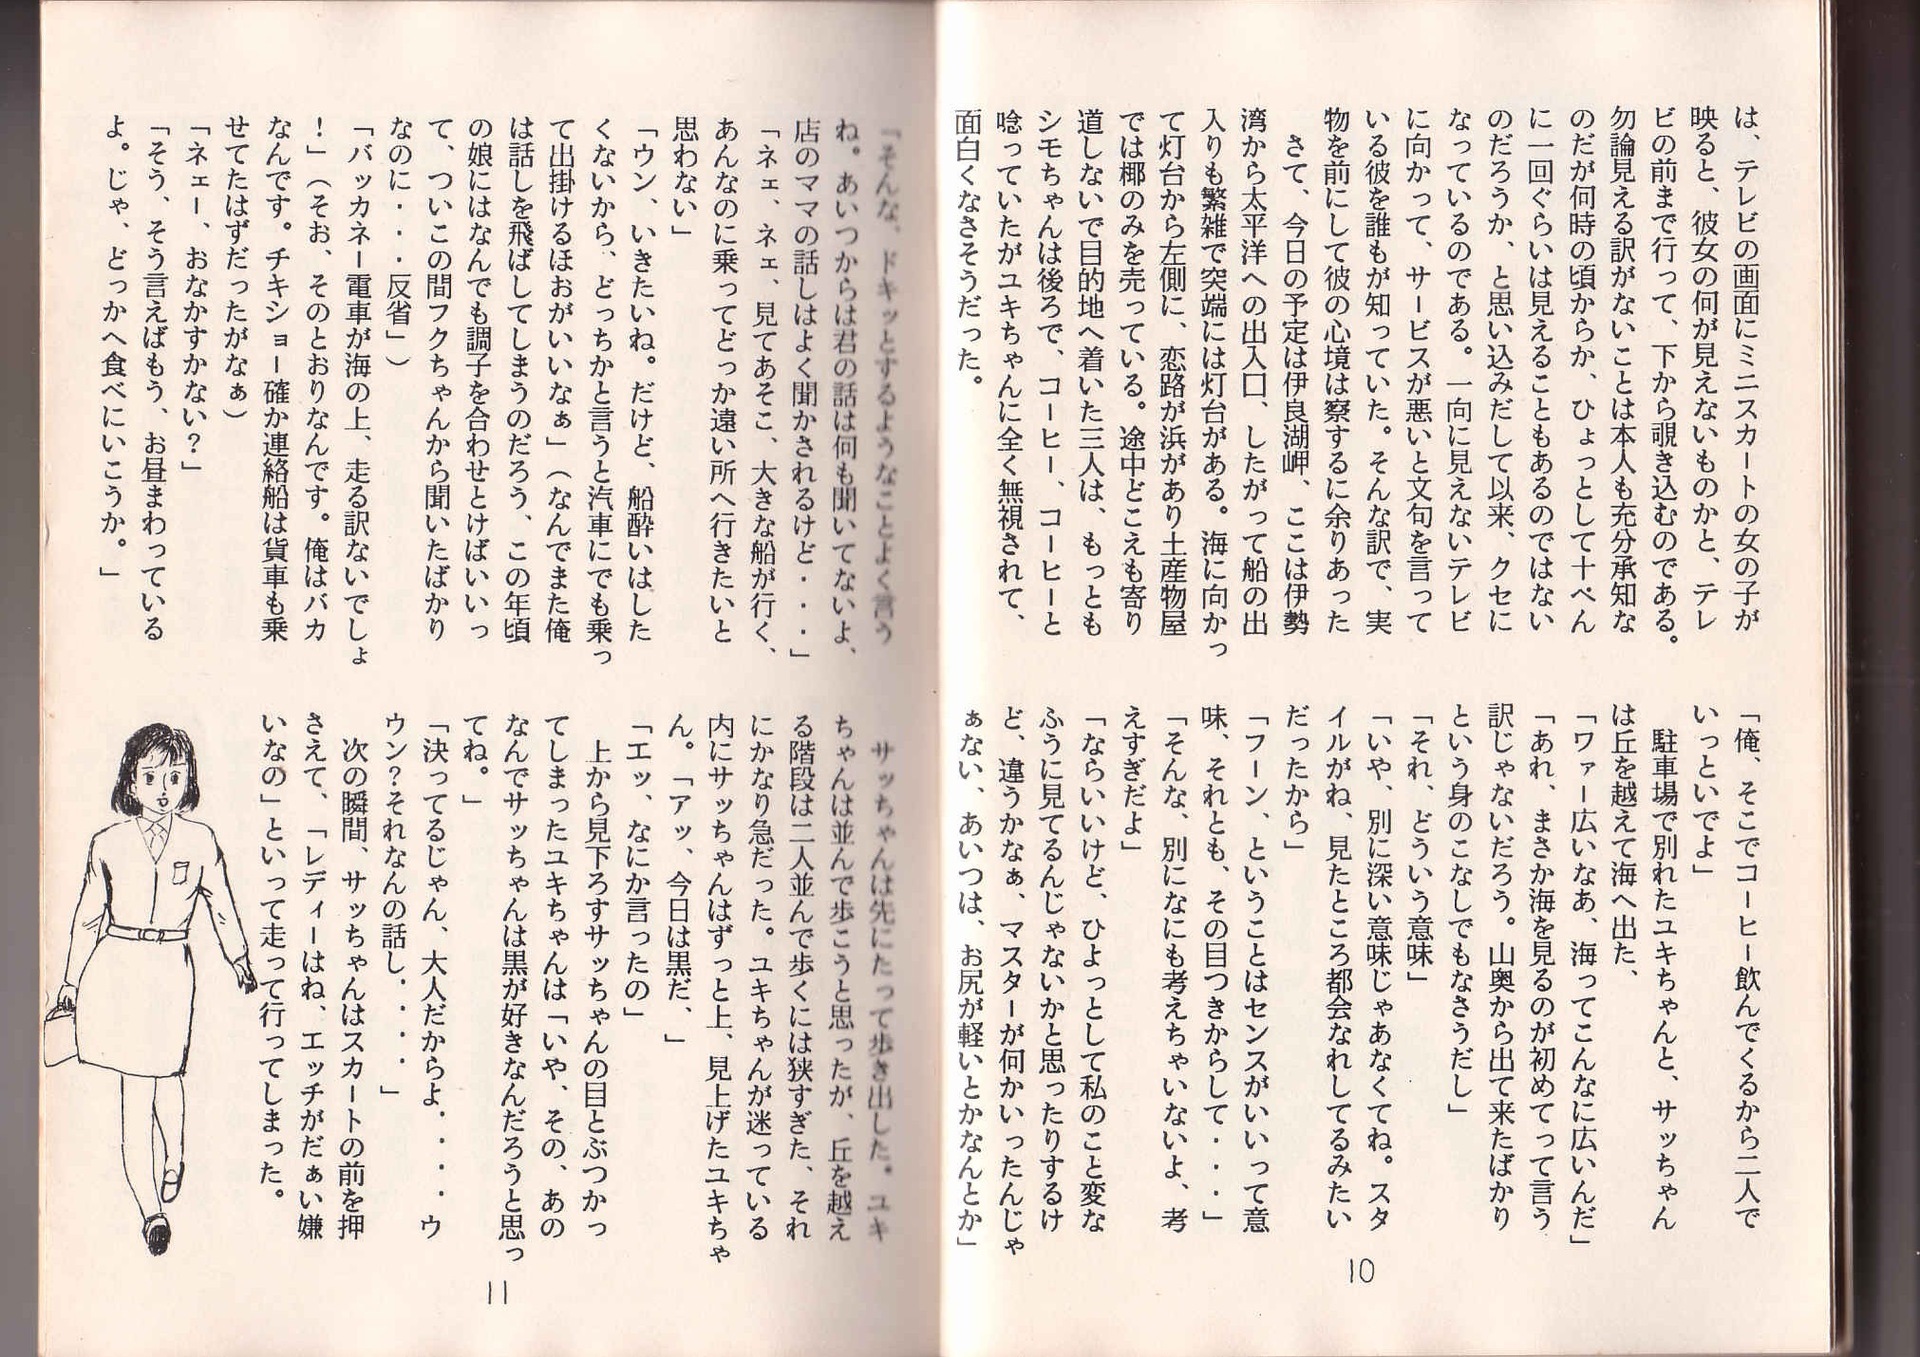 は、テレビの画面にミニスカートの女の子が
映ると、彼女の何が見えないものかと、テレ
ビの前まで行って、下から覗き込むのである。
勿論見える訳がないことは本人も充分承知な
のだが何時の頃からか、ひょっとして十ぺん
に一回ぐらいは見えることもあるのではない
のだろうか、と思い込みだして以来、クセに
なっているのである。一向に見えないテレビ
に向かって、サービスが悪いと文句を言って
いる彼を誰もが知っていた。そんな訳で、実
物を前にして彼の心境は察するに余りあった
さて、今日の予定は伊良湖岬、ここは伊勢
湾から太平洋への出入口、したがって船の出
入りも繁雑で突端には灯台がある。海に向かっ
て灯台から左側に、恋路が浜があり土産物屋
では椰のみを売っている。途中どこえも寄り
道しないで目的地へ着いた三人は、もっとも
シモちゃんは後ろで、コーヒー、コーヒーと
唸っていたがユキちゃんに全く無視されて、
面白くなさそうだった。
「俺、そこでコーヒー飲んでくるから二人で
いっといでよ」
駐車場で別れたユキちゃんと、サッちゃん
は丘を越えて海へ出た、
「ワァー広いなあ、海ってこんなに広いんだ」
「あれ、まさか海を見るのが初めてって言う
訳じゃないだろう。山奥から出て来たばかり
という身のこなしでもなさうだし」
「それ、どういう意味」
「いや、別に深い意味じゃあなくてね。スタ
イルがね、見たところ都会なれしてるみたい
だったから」
「フーン、ということはセンスがいいって意
味、それとも、その目つきからして・・・」
「そんな、別になにも考えちゃいないよ、考
えすぎだよ」
「ならいいけど、ひよっとして私のこと変な
ふうに見てるんじゃないかと思ったりするけ
ど、違うかなぁ、マスターが何かいったんじゃ
ぁない、あいつは、お尻が軽いとかなんとか」
10
「そんな、ドキッとするようなことよく言う
ね。あいつからは君の話は何も聞いてないよ、
店のママの話しはよく聞かされるけど・・・」
「ネェ、ネェ、見てあそこ、大きな船が行く、
あんなのに乗ってどっか遠い所へ行きたいと
思わない」
「ウン、いきたいね。だけど、船酔いはした
くないから、どっちかと言うと汽車にでも乗っ
て出掛けるほおがいいなぁ」（なんでまた俺
は話しを飛ばしてしまうのだろう、この年頃
の娘にはなんでも調子を合わせとけばいいっ
て、ついこの間フクちゃんから聞いたばかり
なのに・・・反省」）
「バッカネー電車が海の上、走る訳ないでしょ
！」（そお、そのとおりなんです。俺はバカ
なんです。チキショー確か連絡船は貨車も乗
せてたはずだったがなぁ）
「ネェー、おなかすかない？」
「そう、そう言えばもう、お昼まわっている
よ。じゃ、どっかへ食べにいこうか。」
サッちゃんは先にたって歩き出した。ユキ
ちゃんは並んで歩こうと思ったが、丘を越え
る階段は二人並んで歩くには狭すぎた、それ
にかなり急だった。ユキちゃんが迷っている
内にサッちゃんはずっと上、見上げたユキちゃ
ん。「アッ、今日は黒だ、」
「エッ、なにか言ったの」
上から見下ろすサッちゃんの目とぶつかっ
てしまったユキちゃんは「いや、その、あの
なんでサッちゃんは黒が好きなんだろうと思っ
てね。」
「決ってるじゃん、大人だからよ・・・ウ
ウン？それなんの話し・・・・」
次の瞬間、サッちゃんはスカートの前を押
さえて、「レディーはね、エッチがだぁい嫌
いなの」といって走って行ってしまった。
11